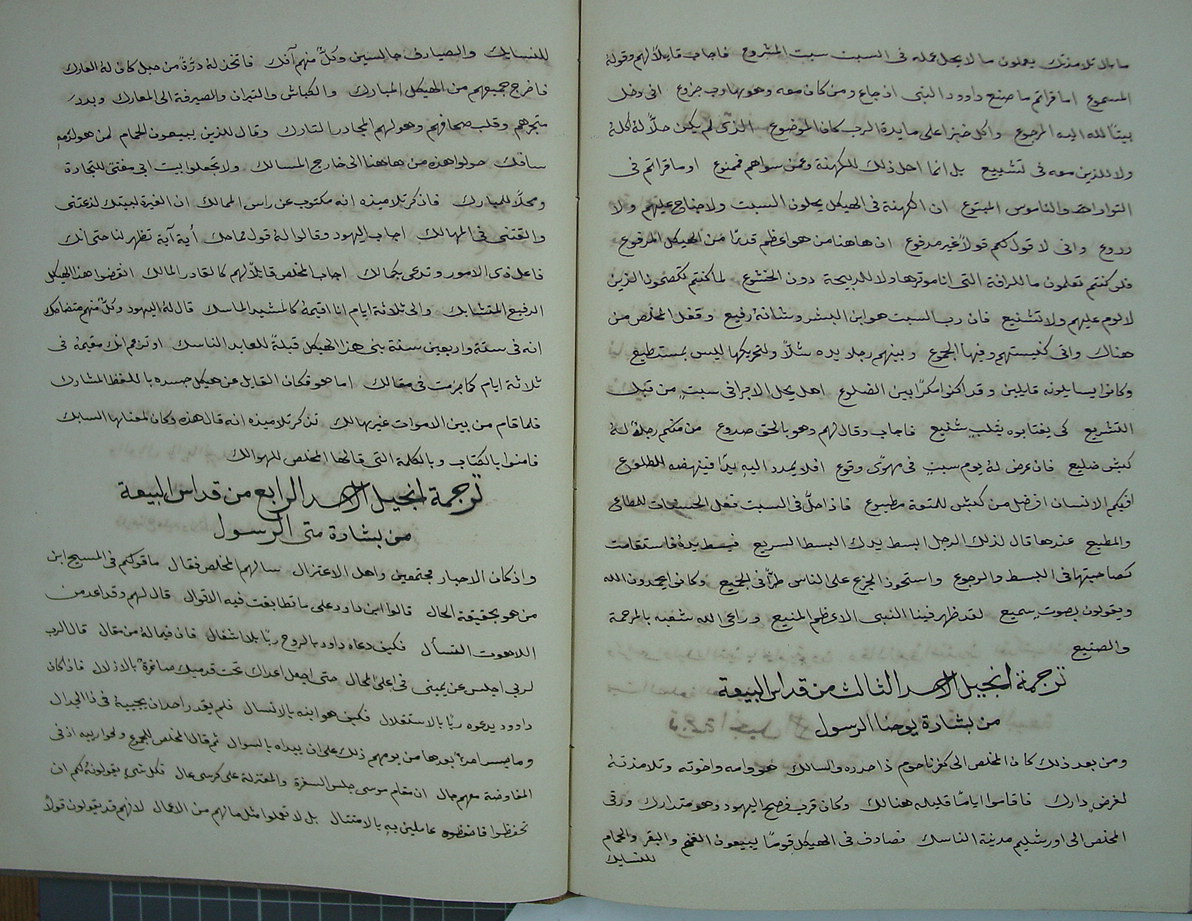 ما بال تلامذتك يعملون ما لا يحل عمله فى السبت سبت المشروع فاجاب قايلاً لهم وقوله
المسموع اما قراتم ما صنع داوود النبى اذ جاع ومن كان معه وهو هارب جزوع اذ دخل
بيتاً لله اليه المرجوع واكل خبزاً على مايدة الرب كان الموضوع الذى لم يكن حلاً له اكله
ولا للذين معه فى تشييع بل انما احل ذلك للكهنة وممن سواهم فممنوع او ما قراتم فى
التوراة والناموس المتبوع ان الكهنة فى الهيكل يحلون السبت ولا جناح عليهم ولا
ردوع وانى لا قول لكم قولاً غير مدفوع ان هاهنا من هو اعظم قدرًا من الهيكل المرفوع
فلو كنتم تعلمون ما للرافة التى انا موثرها ولا للذبيحة دون الخشوع لما كنتم تخصمون الذين
لا لوم عليهم ولا تشنيع فان رب السبت هو ابن البشر وشانه رفيع وقفل المخلص من
هناك واتى كنيستهم وفيها الجموع وبينهم رجل يده شلّا ولتحريكها ليس بمستطيع
وكانوا يسايلونه قايلين وقد اكنوا مكرًا بين الضلوع اهل يحل الابرا فى سبت من قبل
التشريع كى يغتابوه بقلب شنيع فاجاب وقال لهم وهو بالحق صدوع من منكم رجل له
كبش ضليع فان عرض له يوم سبت فى مهوى وقوع افلا يمدد اليه يدًا فينهضه للطلوع
افيكم الانسان افضل من كبش للمتعة مطبوع فاذ احلّ فى السبت فعل الحسنات للطائى
والمطيع عندها قال لذلك الرجل ابسط يدك البسط السريع فبسط يده فاستقامت
كصاحبتها فى البسط والرجوع واستحوذ الجزع على الناس طرًّا فى الجميع وكانوا يمجدون الله
ويقولون بصوت سميع لقد ظهر فينا النبى الاعظم المنيع وراعى الله شعبه بالمرحمة
والصنيع
ترجمة انجيل الاحد الثالث من قداس البيعة
من بشارة يوحنا الرسول
ومن بعد ذلك كان المخلص الى كفرناحوم ذا حدره والسالك هو وامه واخوته وتلامذته
لغرض دارك فاقاموا ايامًا قليله هنالك وكان قرب فصح اليهود وهو متدارك ورقى
المخلص الى اورشليم مدينة الناسك فصادف فى الهيكل قومًا يبيعون الغنم والبقر والحمام
للنسايك
للنسايك والصيارف جالسين وكلّ منهم آفك فاتخذ له درّة من حبل كان له العارك
فاخرج جميعهم من الهيكل المبارك والكباش والثيران والصيرفة الى المعارك وبدد
متجرهم وقلب صحافهم وهو لهم المجادر التارك وقال للذين يبيعون الحمام لمن هو لدمه
سافك حولوا هذه من هاهنا الى خارج المسالك ولا تجعلوا بيت ابى مغنى للتجارة
ومحلاً للمبارك فاذكر تلاميذه انه مكتوب عن راس الممالك ان الغيرة لبيتك لذعتنى
والقتنى فى المهالك اجاب اليهود وقالوا له قول مماحك أية آية تظهر لنا حتى انك
فاعل ذى الامور وتدعى بكمالك اجاب المخلص قائلاً لهم كالقادر المالك انقضوا هذا الهيكل
الرفيع المتشابك والى ثلاثة ايام انا اقيمه كالمشيد الماسك قال له اليهود وكلّ منهم متضاحك
انه فى ستة واربعين سنة بنى هذا الهيكل قبلة للعابد الناسك او تزعم انك مقيمه فى
ثلاثة ايام كما جزمت فى مقالك اما هو فكان القايل عن هيكل جسده باللفظ المشارك
فلما قام من بين الاموات غير هالك تذكر تلاميذه انه قال هذه وكان لمعناها السابك
فامنوا بالكتاب وبالكلمة التى قالها المخلص للهوالك
ترجمة انجيل الاحد الرابع من قداس البيعة
من بشارة متى الرسول
واذ كان الاحبار مجتمعين واهل الاعتزال سالهم المخلص فقال ما قولكم فى المسيح ابن
من هو بحقيقة الحال قالوا ابن داود على ما تطابقت فيه الاقوال قال لهم وقد اعد من
اللاهوت السال فكيف دعاه داود بالروح ربًا بلا اشغال فان فيما له من مقال قال الرب
لربى اجلس عن يمينى فى اعلى المحال حتى اجعل اعداك تحت قدميك صاغرة بالاذلال فاذا كان
داوود يدعوه ربًا بالاستقلال فكيف هو ابنه بالانسال فلم يقدر احد ان يجيبه فى ذا الجدال
وما جسر احد بورها من يومهم ذلك على ان يبداه بالسوال ثم قال المخلص للجموع ولحواربيه اذ فى
المفاوضة معهم جال ان مقام موسى جلس السفرة والمعتزلة على كرسى عال فكل شى يقولونه لكم ان
تحفظوا فاحفظوه عاملين به بالامتثال بل لا تعملوا مثل مالهم من الاعمال لانهم قد يقولون قولاً